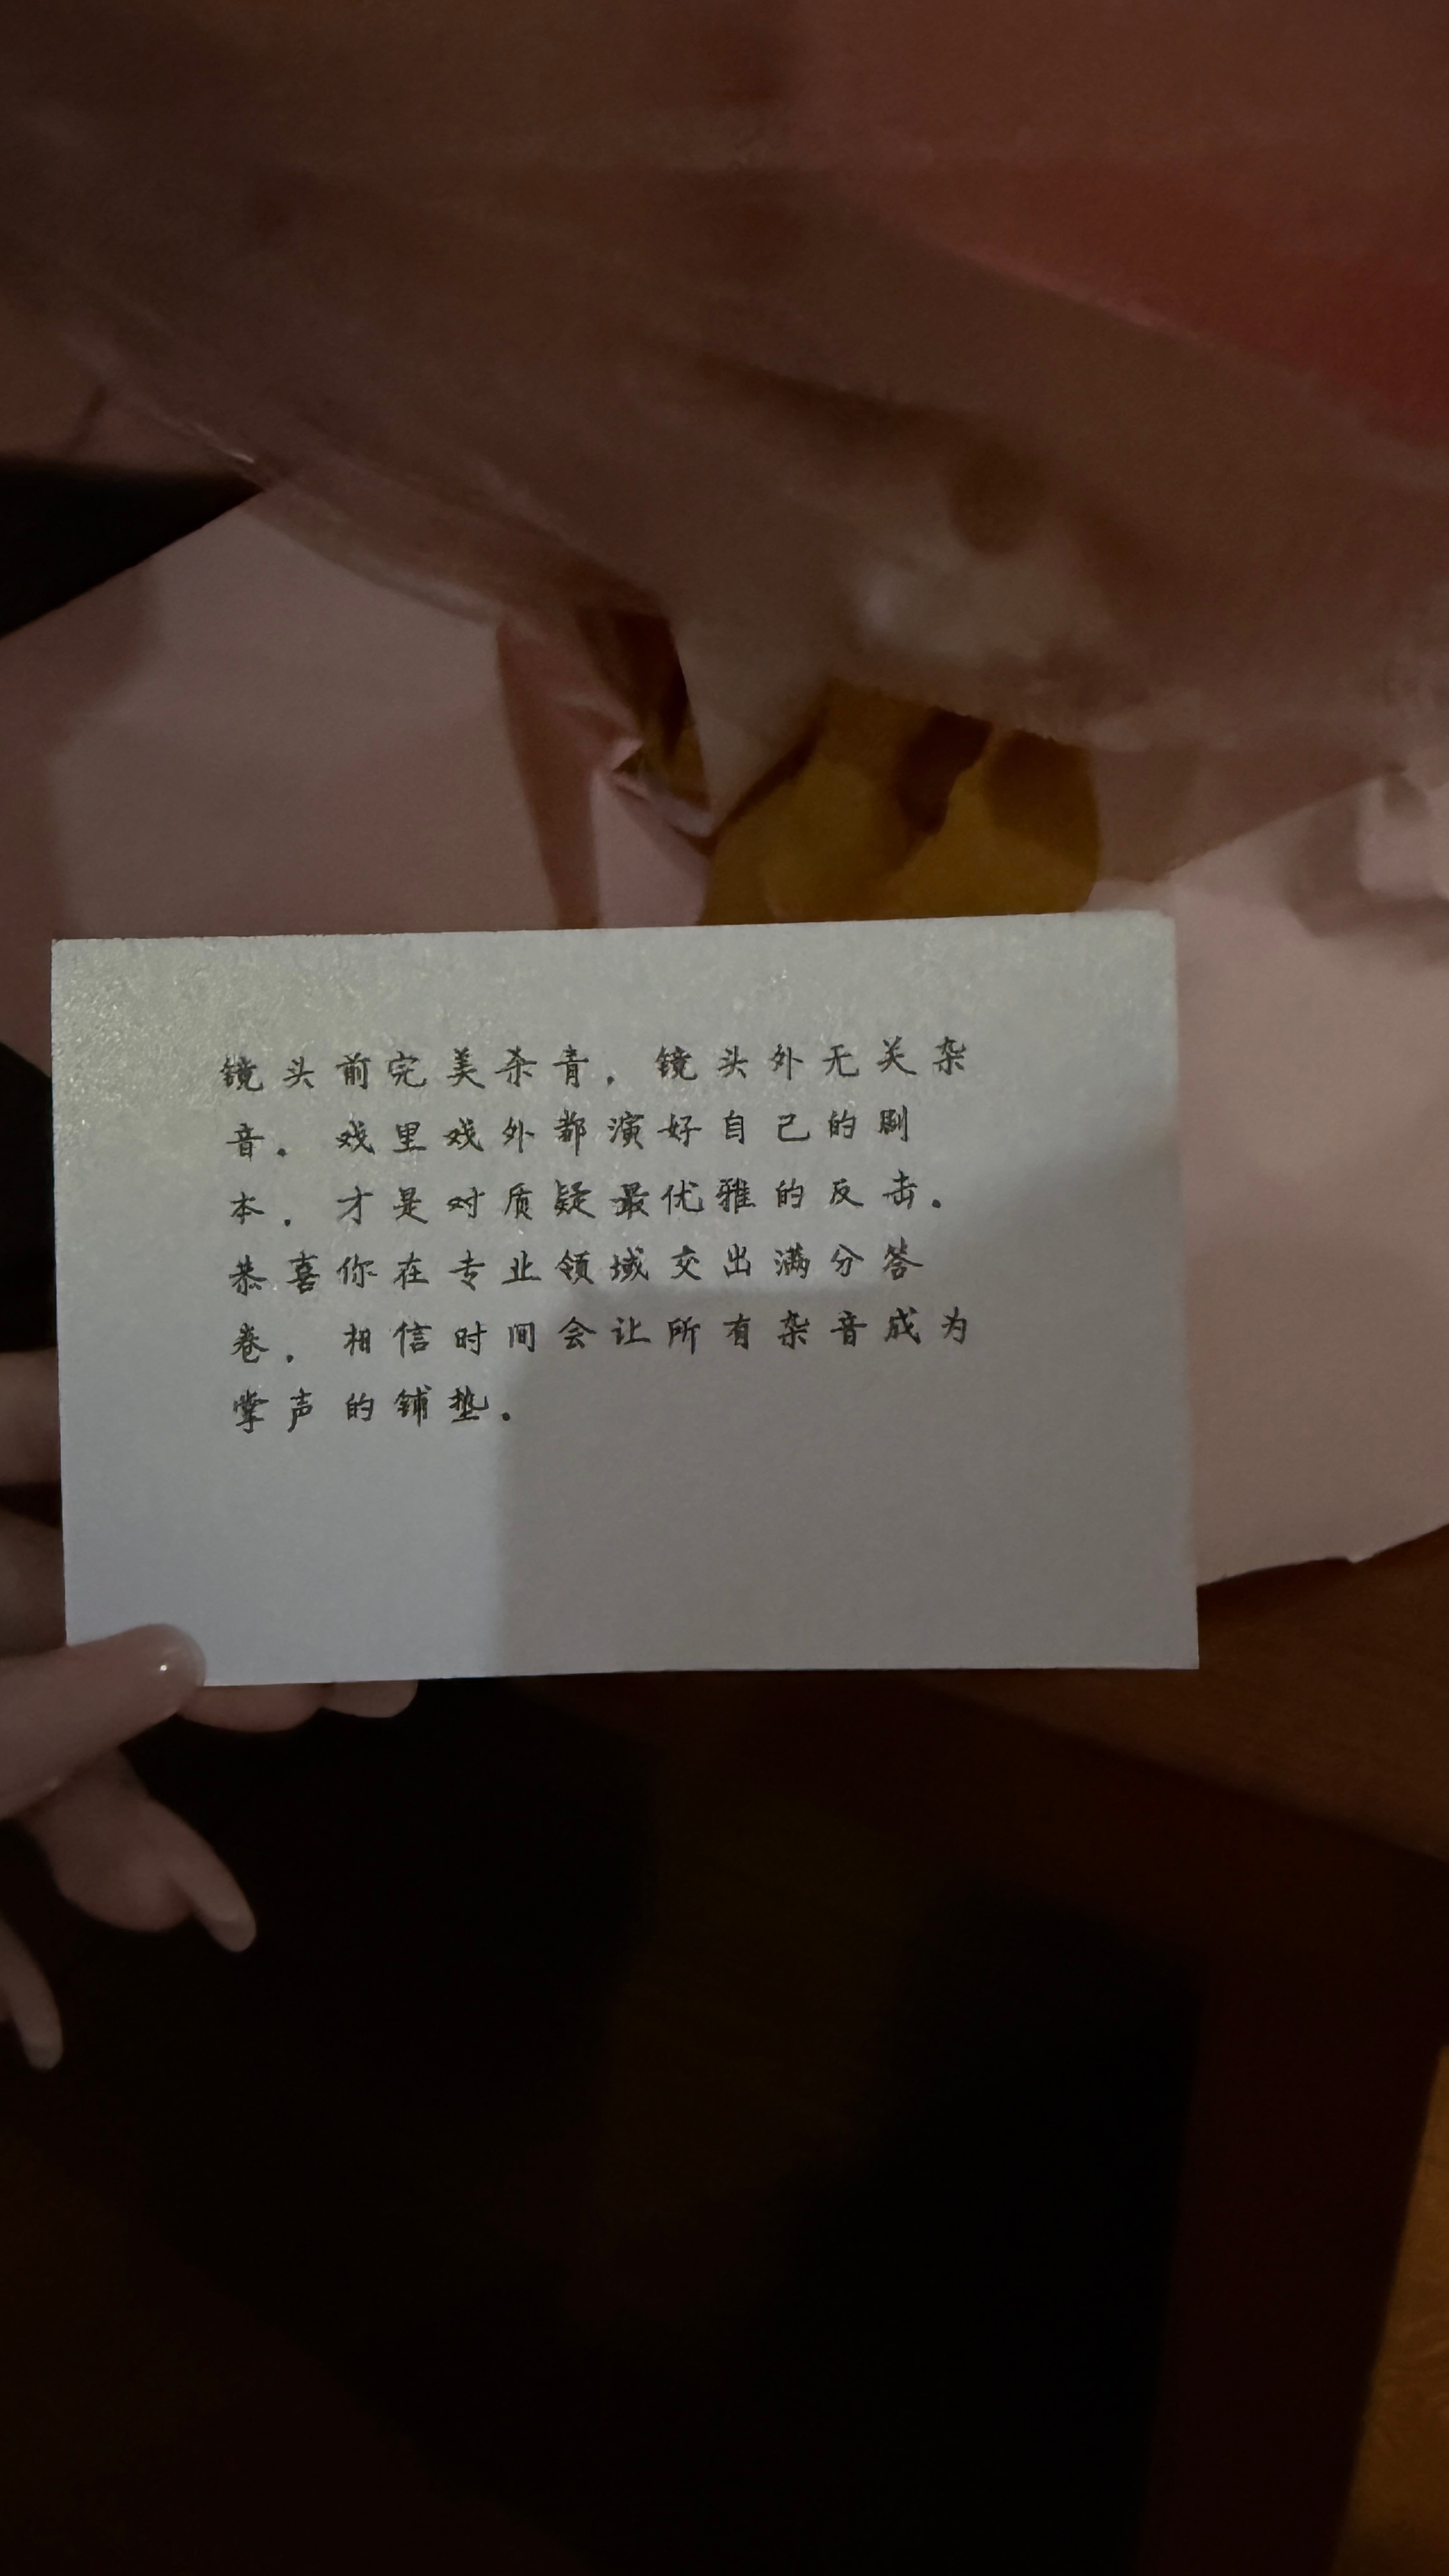 镜头前完美杀青，镜头外无关杂
音。戏里戏外都演好自己的剧
本，才是对质疑最优雅的反击。
恭喜你在专业领域交出满分答
卷，相信时间会让所有杂音成为
掌声的铺垫。